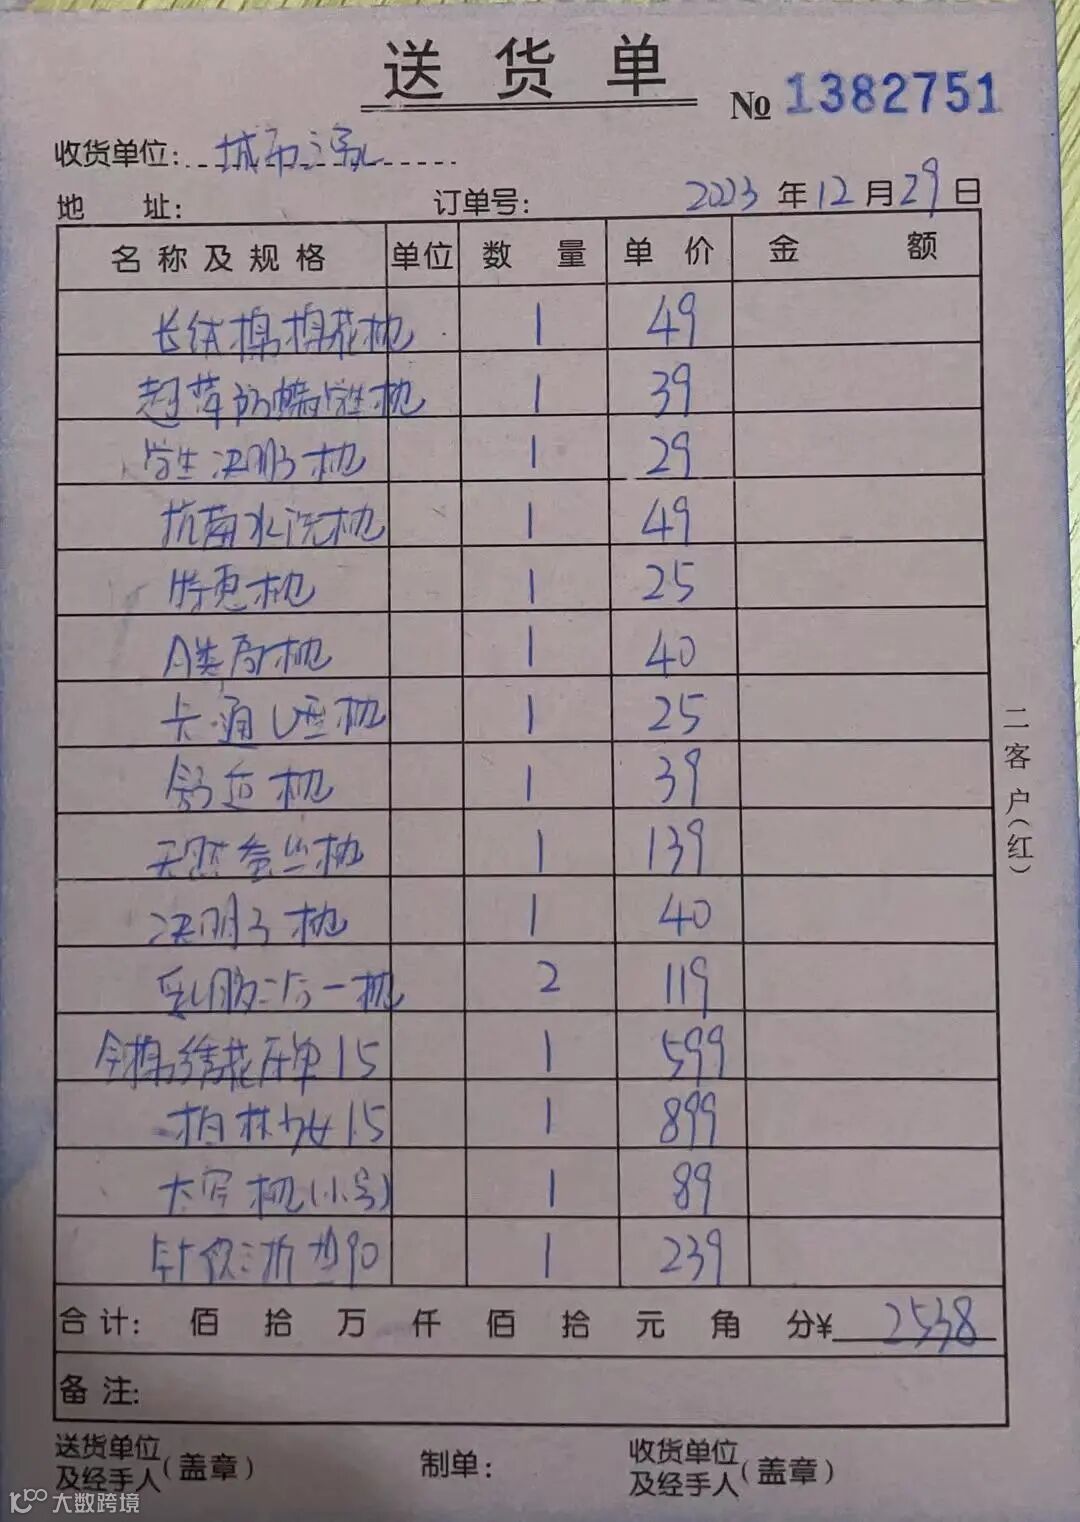 送货单
№ 1382751
收货单位: 城市之家
地 址: 订单号: 2023 年 12 月 29 日
名称及规格 单位 数量 单价 金额
长绒棉棉花枕 1 49
防螨 枕 1 39
学生决明子枕 1 29
抗菌水洗枕 1 49
特惠枕 1 25
A类 枕 1 40
卡通U型枕 1 25
舒适枕 1 39
天然蚕丝枕 1 139
决明子枕 1 40
乳胶 一枕 2 119
全棉绣花床单15 1 599
柏林 15 1 899
枕(小号) 1 89
针织三折垫90 1 239
合计: 佰 拾 万 仟 佰 拾 元 角 分¥ 2538
备注:
二客户(红)
送货单位及经手人(盖章) 制单: 收货单位及经手人(盖章)
大数跨境